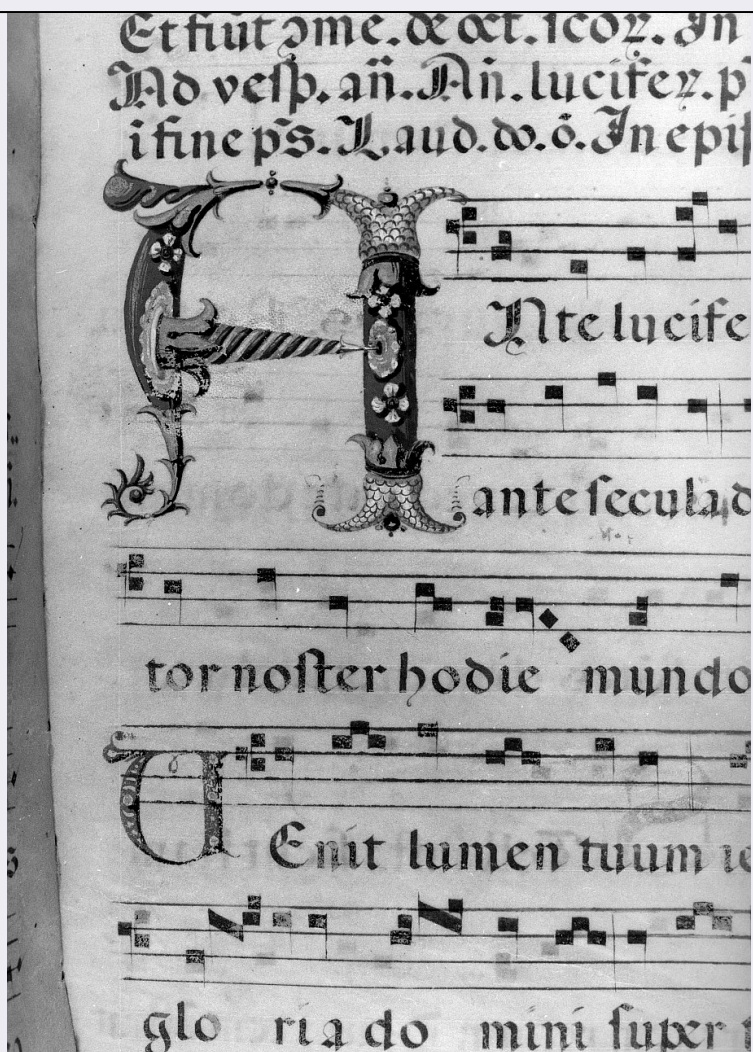 Et fiũt ɔme. de oct. scoꝝ. In
Ad vesp. añ. Añ. lucifeꝝ. p
i fine p̃s. Laud. do. õ. In epip
ANte lucife
ante secula d
tor noster hodie mundo
VEnit lumen tuum ie
glo ria do mini super t